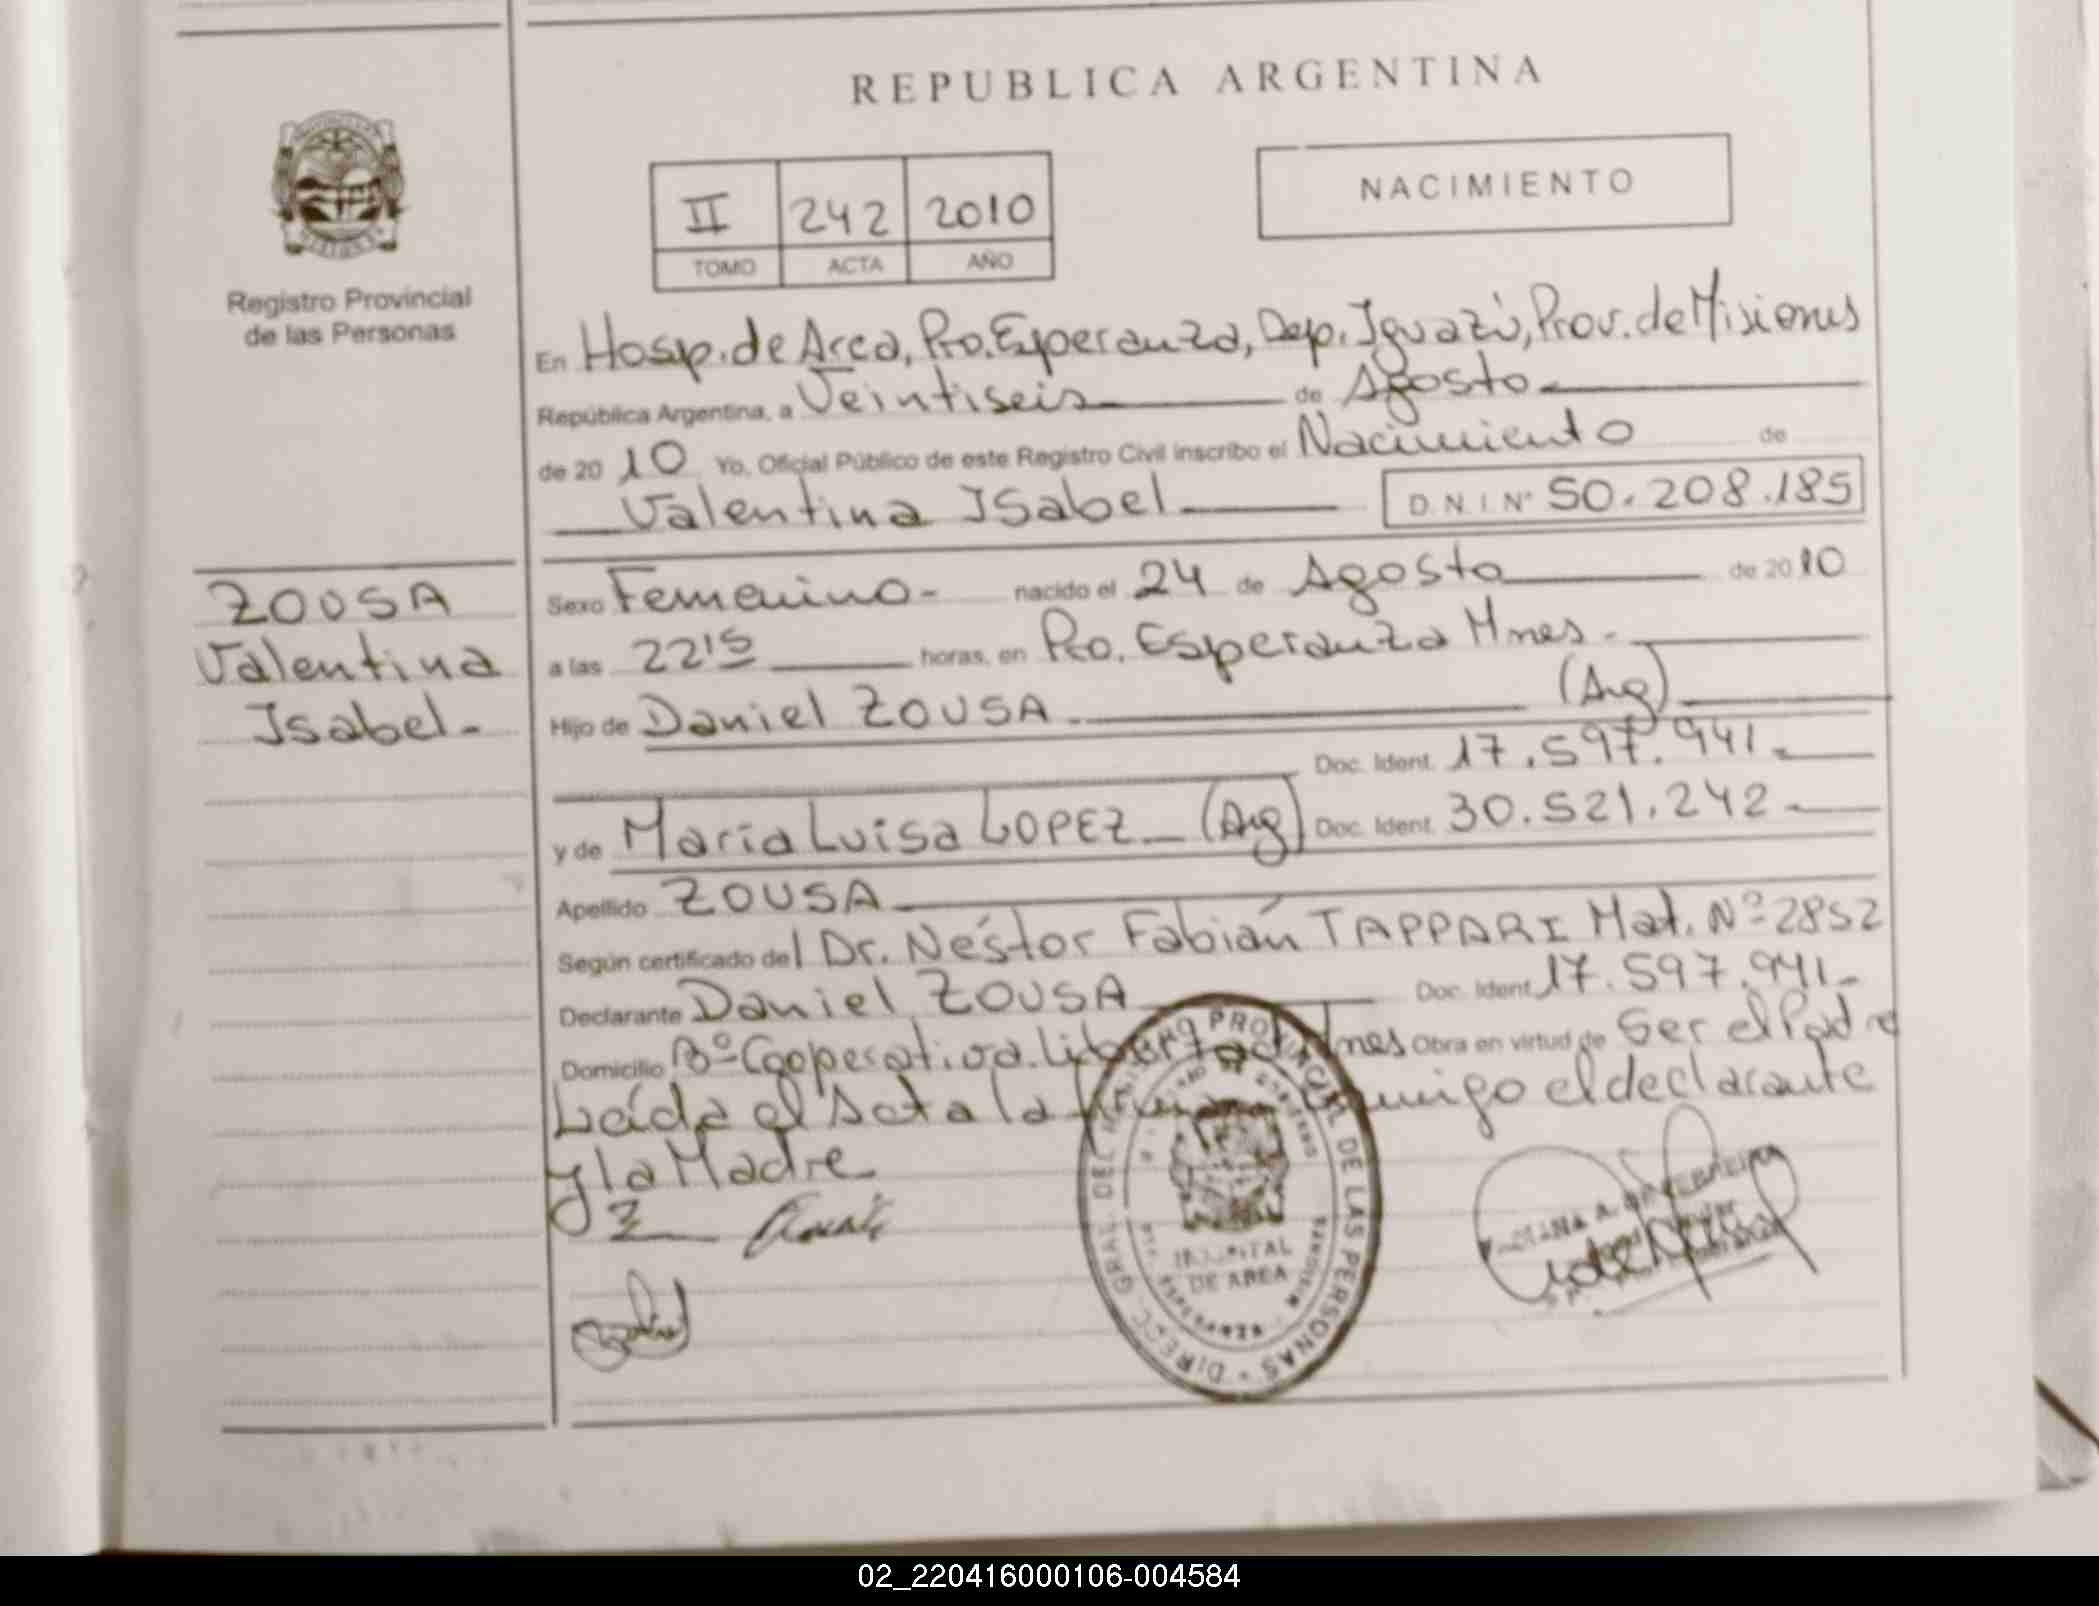 REPUBLICA ARGENTINA
NACIMIENTO
II 242 2010
TOMO ACTA AÑO
Registro Provincial
de las Personas
En Hosp. de Area, Pto. Esperanza, Dep. Iguazú, Prov. de Misiones
República Argentina, a Veintiseis de Agosto
de 20 10 Yo, Oficial Público de este Registro Civil inscribo el Nacimiento de
Valentina Isabel D.N.I Nº 50.208.185
ZOUSA
Valentina
Isabel.-
Sexo Femenino- nacido el 24 de Agosto de 20 10
a las 22 15 horas, en Pto. Esperanza Mnes.
Hijo de Daniel ZOUSA (Arg)
Doc. Ident. 17.597.941.-
y de María Luisa LOPEZ (Arg) Doc. Ident. 30.521.242-
Apellido ZOUSA
Según certificado del Dr. Néstor Fabián TAPPARI Mat. Nº 2852
Declarante Daniel ZOUSA Doc. Ident 17.597.941-
Domicilio Bº Cooperativa. Libertad Mnes Obra en virtud de Ser el Padre
Leída el Acta la el declarante
y la Madre
DIRECC. GRAL. DEL REGISTRO PROVINCIAL DE LAS PERSONAS
HOSPITAL
DE AREA
02_220416000106-004584